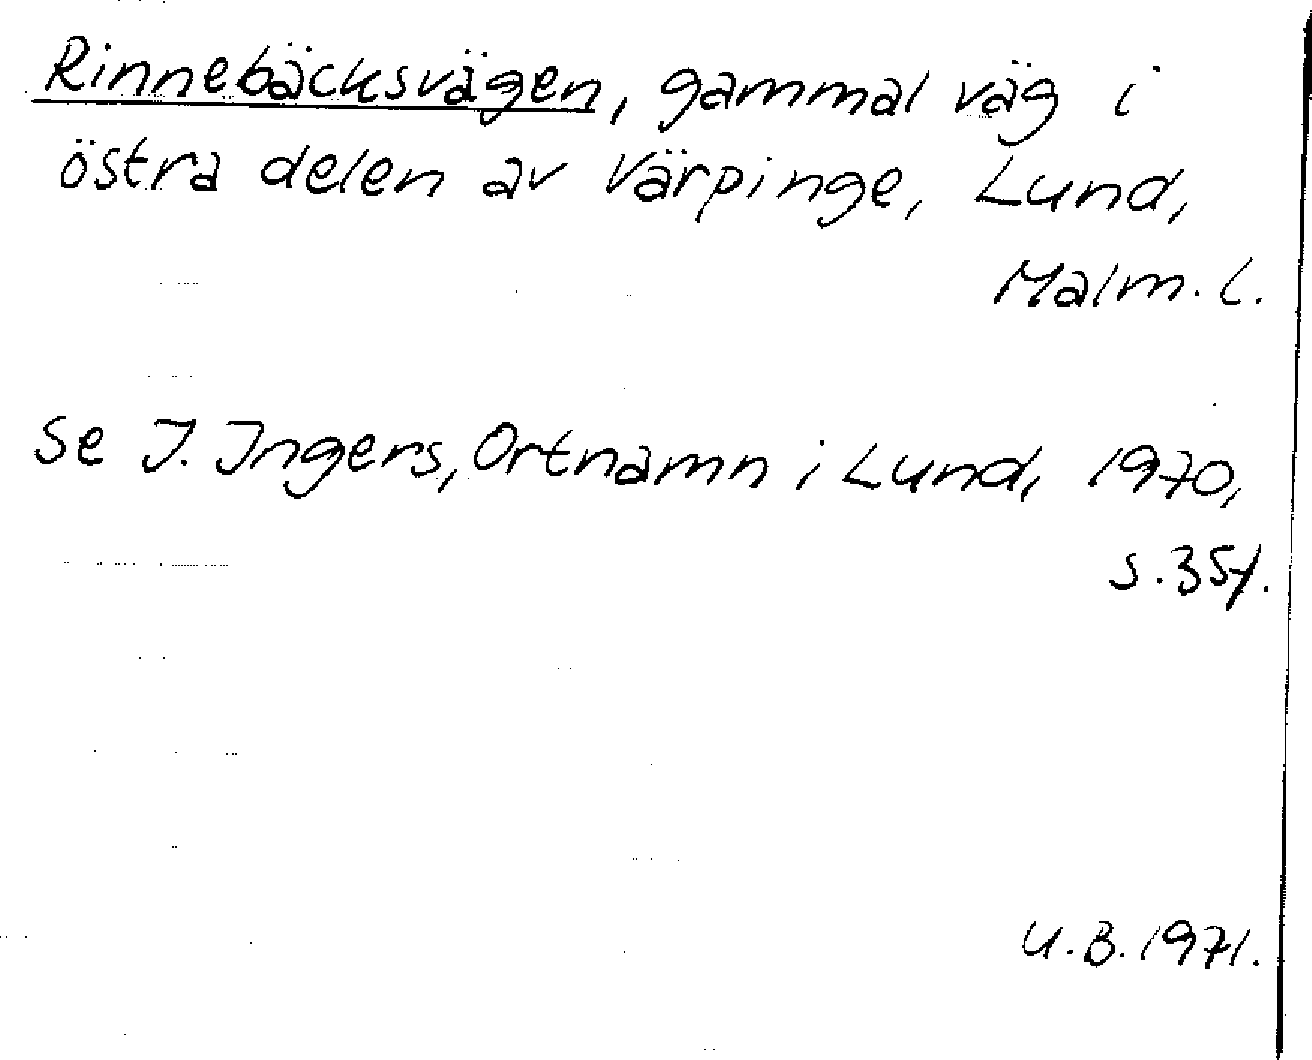 Rinnebäcksvägen, gammal väg i
östra delen av Värpinge, Lund,
Malm. l.
Se I. Ingers, Ortnamn i Lund, 1970,
s. 35f.
U.B. 1971.